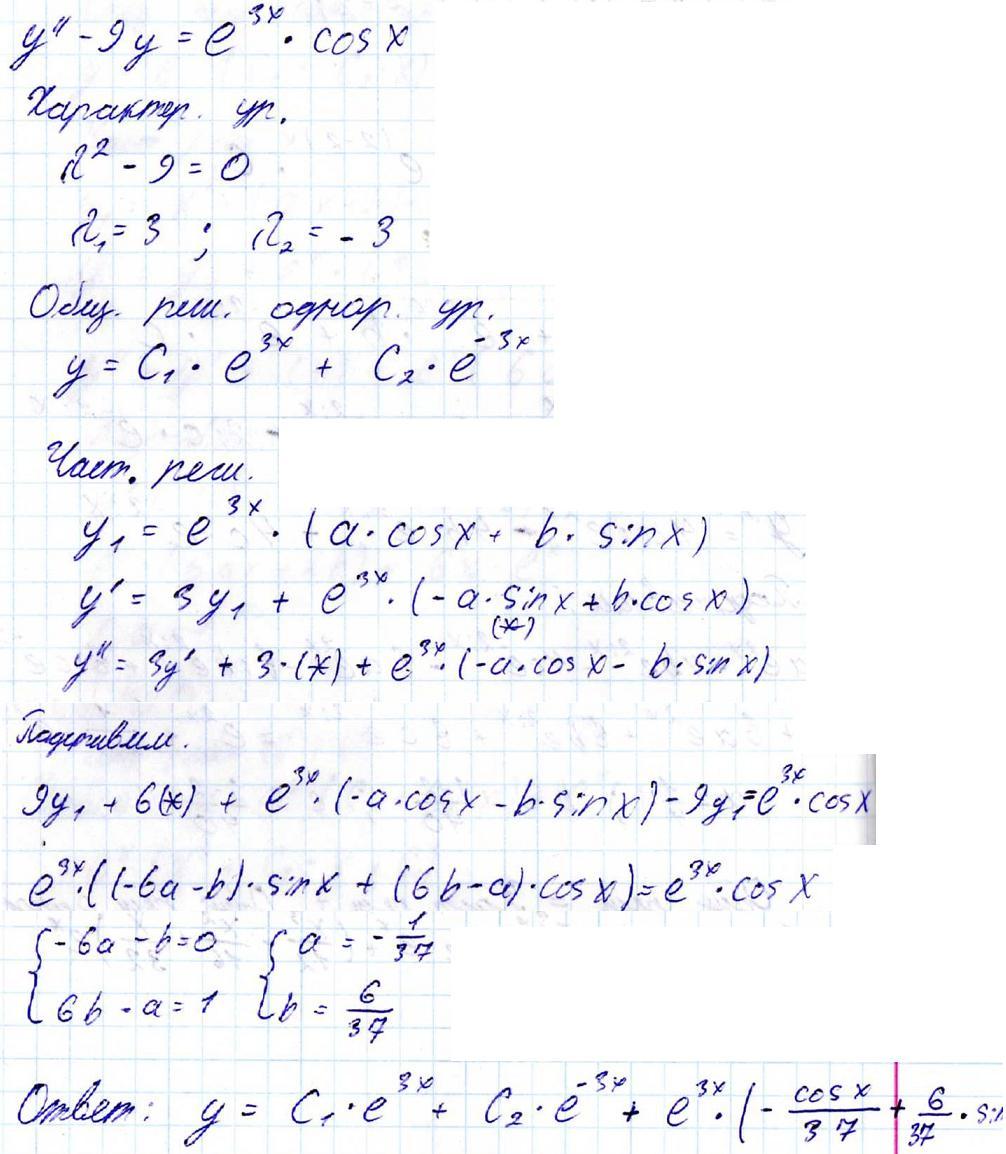 y'' - 9y = e^{3x} · cos x
Характер. ур.
λ² - 9 = 0
λ₁ = 3 ; λ₂ = - 3
Общ. реш. однор. ур.
y = C₁ · e^{3x} + C₂ · e^{-3x}
Част. реш.
y₁ = e^{3x} · (a · cos x + b · sin x)
y' = 3y₁ + e^{3x} · (- a · sin x + b · cos x)
(*)
y'' = 3y' + 3 · (*) + e^{3x} · (-a · cos x - b · sin x)
Подставим.
9y₁ + 6(*) + e^{3x} · (-a · cos x - b · sin x) - 9y₁ = e^{3x} · cos x
e^{3x} · ((-6a - b) · sin x + (6b - a) · cos x) = e^{3x} · cos x
{ -6a - b = 0 { a = - 1/37
{ 6b - a = 1 { b = 6/37
Ответ: y = C₁ · e^{3x} + C₂ · e^{-3x} + e^{3x} · (- cos x/37 + 6/37 · sin